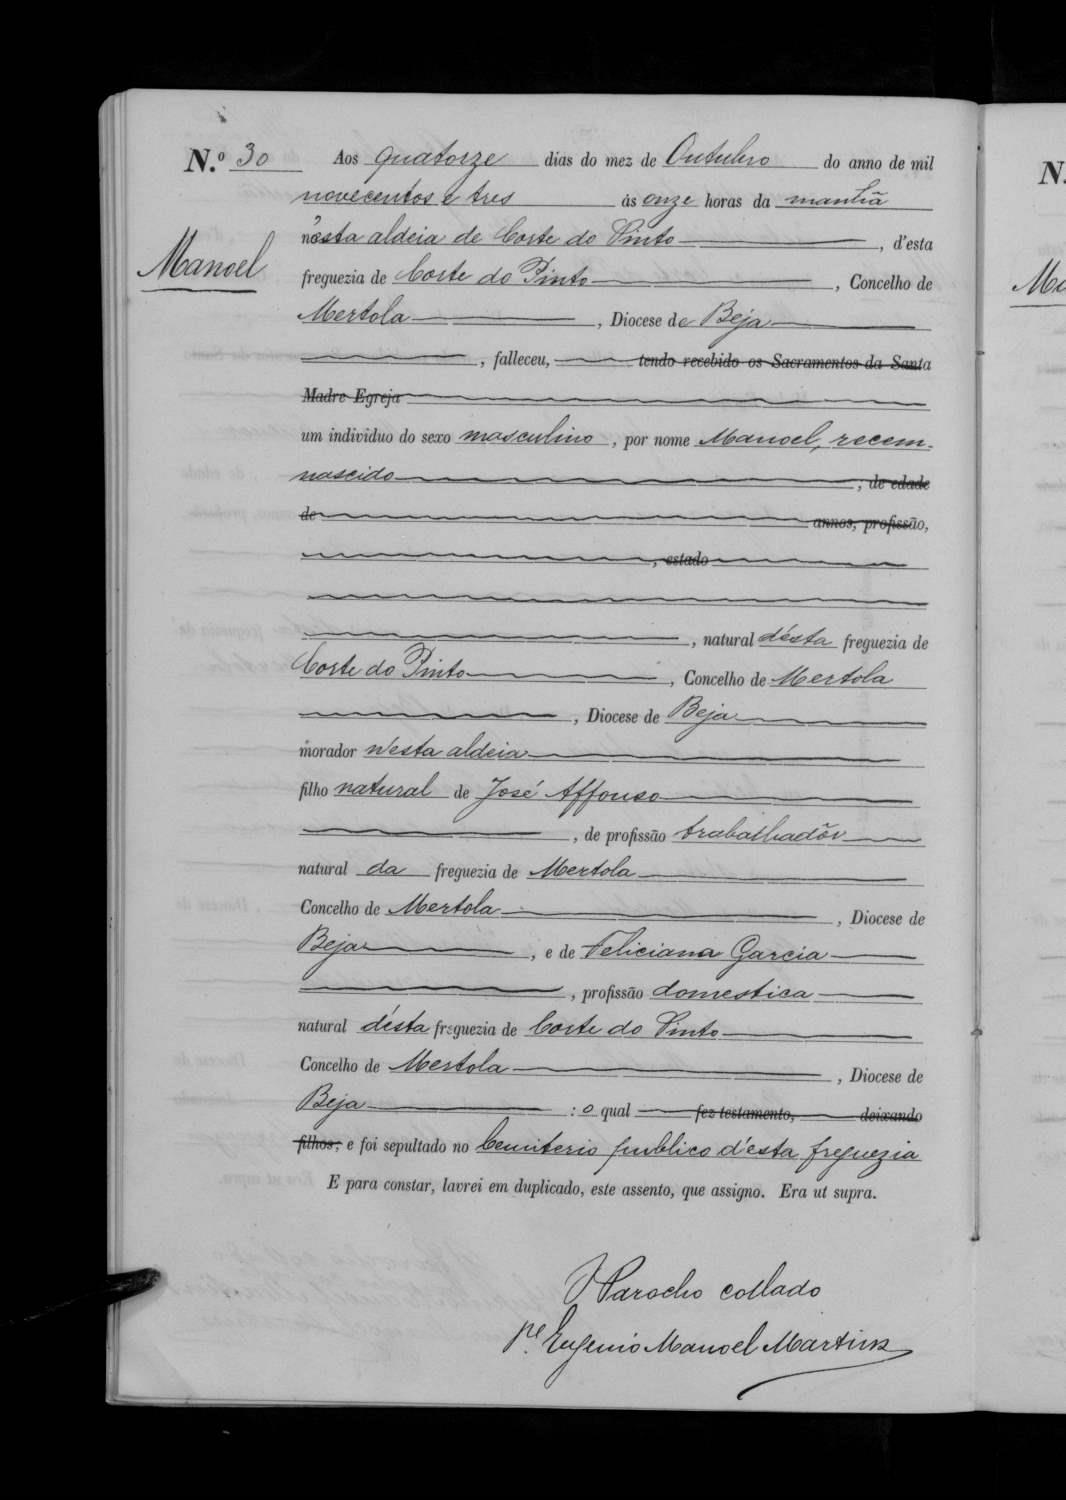 N.º 30 Aos quatorze dias do mez de Outubro do anno de mil
novecentos e tres ás onze horas da manhã
n'esta aldeia de Corte do Pinto, d'esta
Manoel
freguezia de Corte do Pinto, Concelho de
Mertola, Diocese de Beja
, falleceu, tendo recebido os Sacramentos da Santa
Madre Egreja
um individuo do sexo masculino, por nome Manoel, recem-
nascido, de edade
de annos, profissão,
, estado
, natural d'ésta freguezia de
Corte do Pinto, Concelho de Mertola
, Diocese de Beja
morador n'esta aldeia
filho natural de José Affonso
, de profissão trabalhadôr
natural da freguezia de Mertola
Concelho de Mertola, Diocese de
Beja, e de Feliciana Garcia
, profissão domestica
natural d'ésta freguezia de Corte do Pinto
Concelho de Mertola, Diocese de
Beja : o qual fez testamento, deixando
filhos; e foi sepultado no Cemiterio publico d'esta freguezia
E para constar, lavrei em duplicado, este assento, que assigno. Era ut supra.
O Parocho collado
P.e Eugenio Manoel Martins
N.
Ma